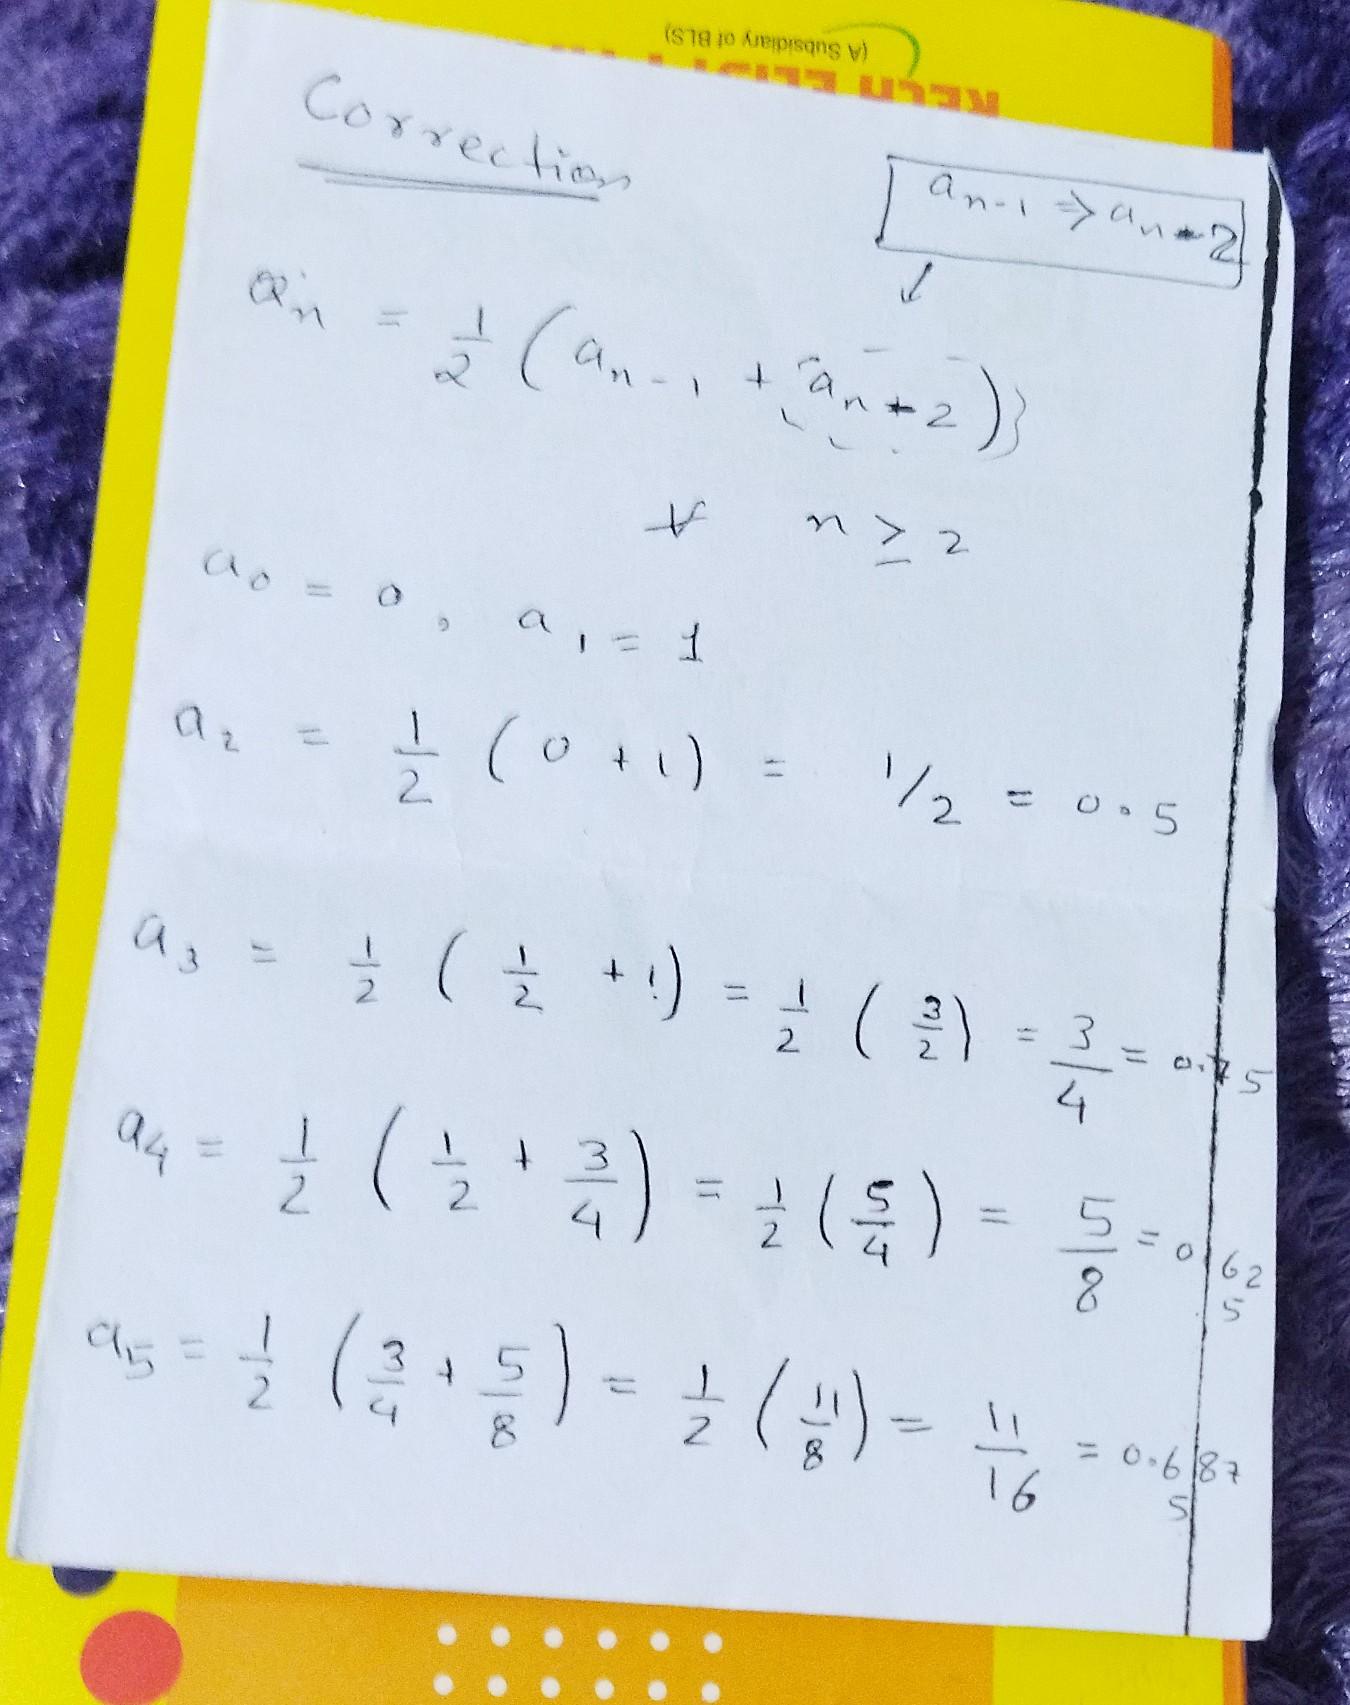 (A Subsidiary of BLS)
Correction
aₙ₋₁ ⇒ aₙ₋₂
↓
aₙ = 1/2 (aₙ₋₁ + aₙ₊₂)}
∀ n ≥ 2
a₀ = 0, a₁ = 1
a₂ = 1/2 (0 + 1) = 1/2 = 0.5
a₃ = 1/2 (1/2 + 1) = 1/2 (3/2) = 3/4 = 0.75
a₄ = 1/2 (1/2 + 3/4) = 1/2 (5/4) = 5/8 = 0.625
a₅ = 1/2 (3/4 + 5/8) = 1/2 (11/8) = 11/16 = 0.6875